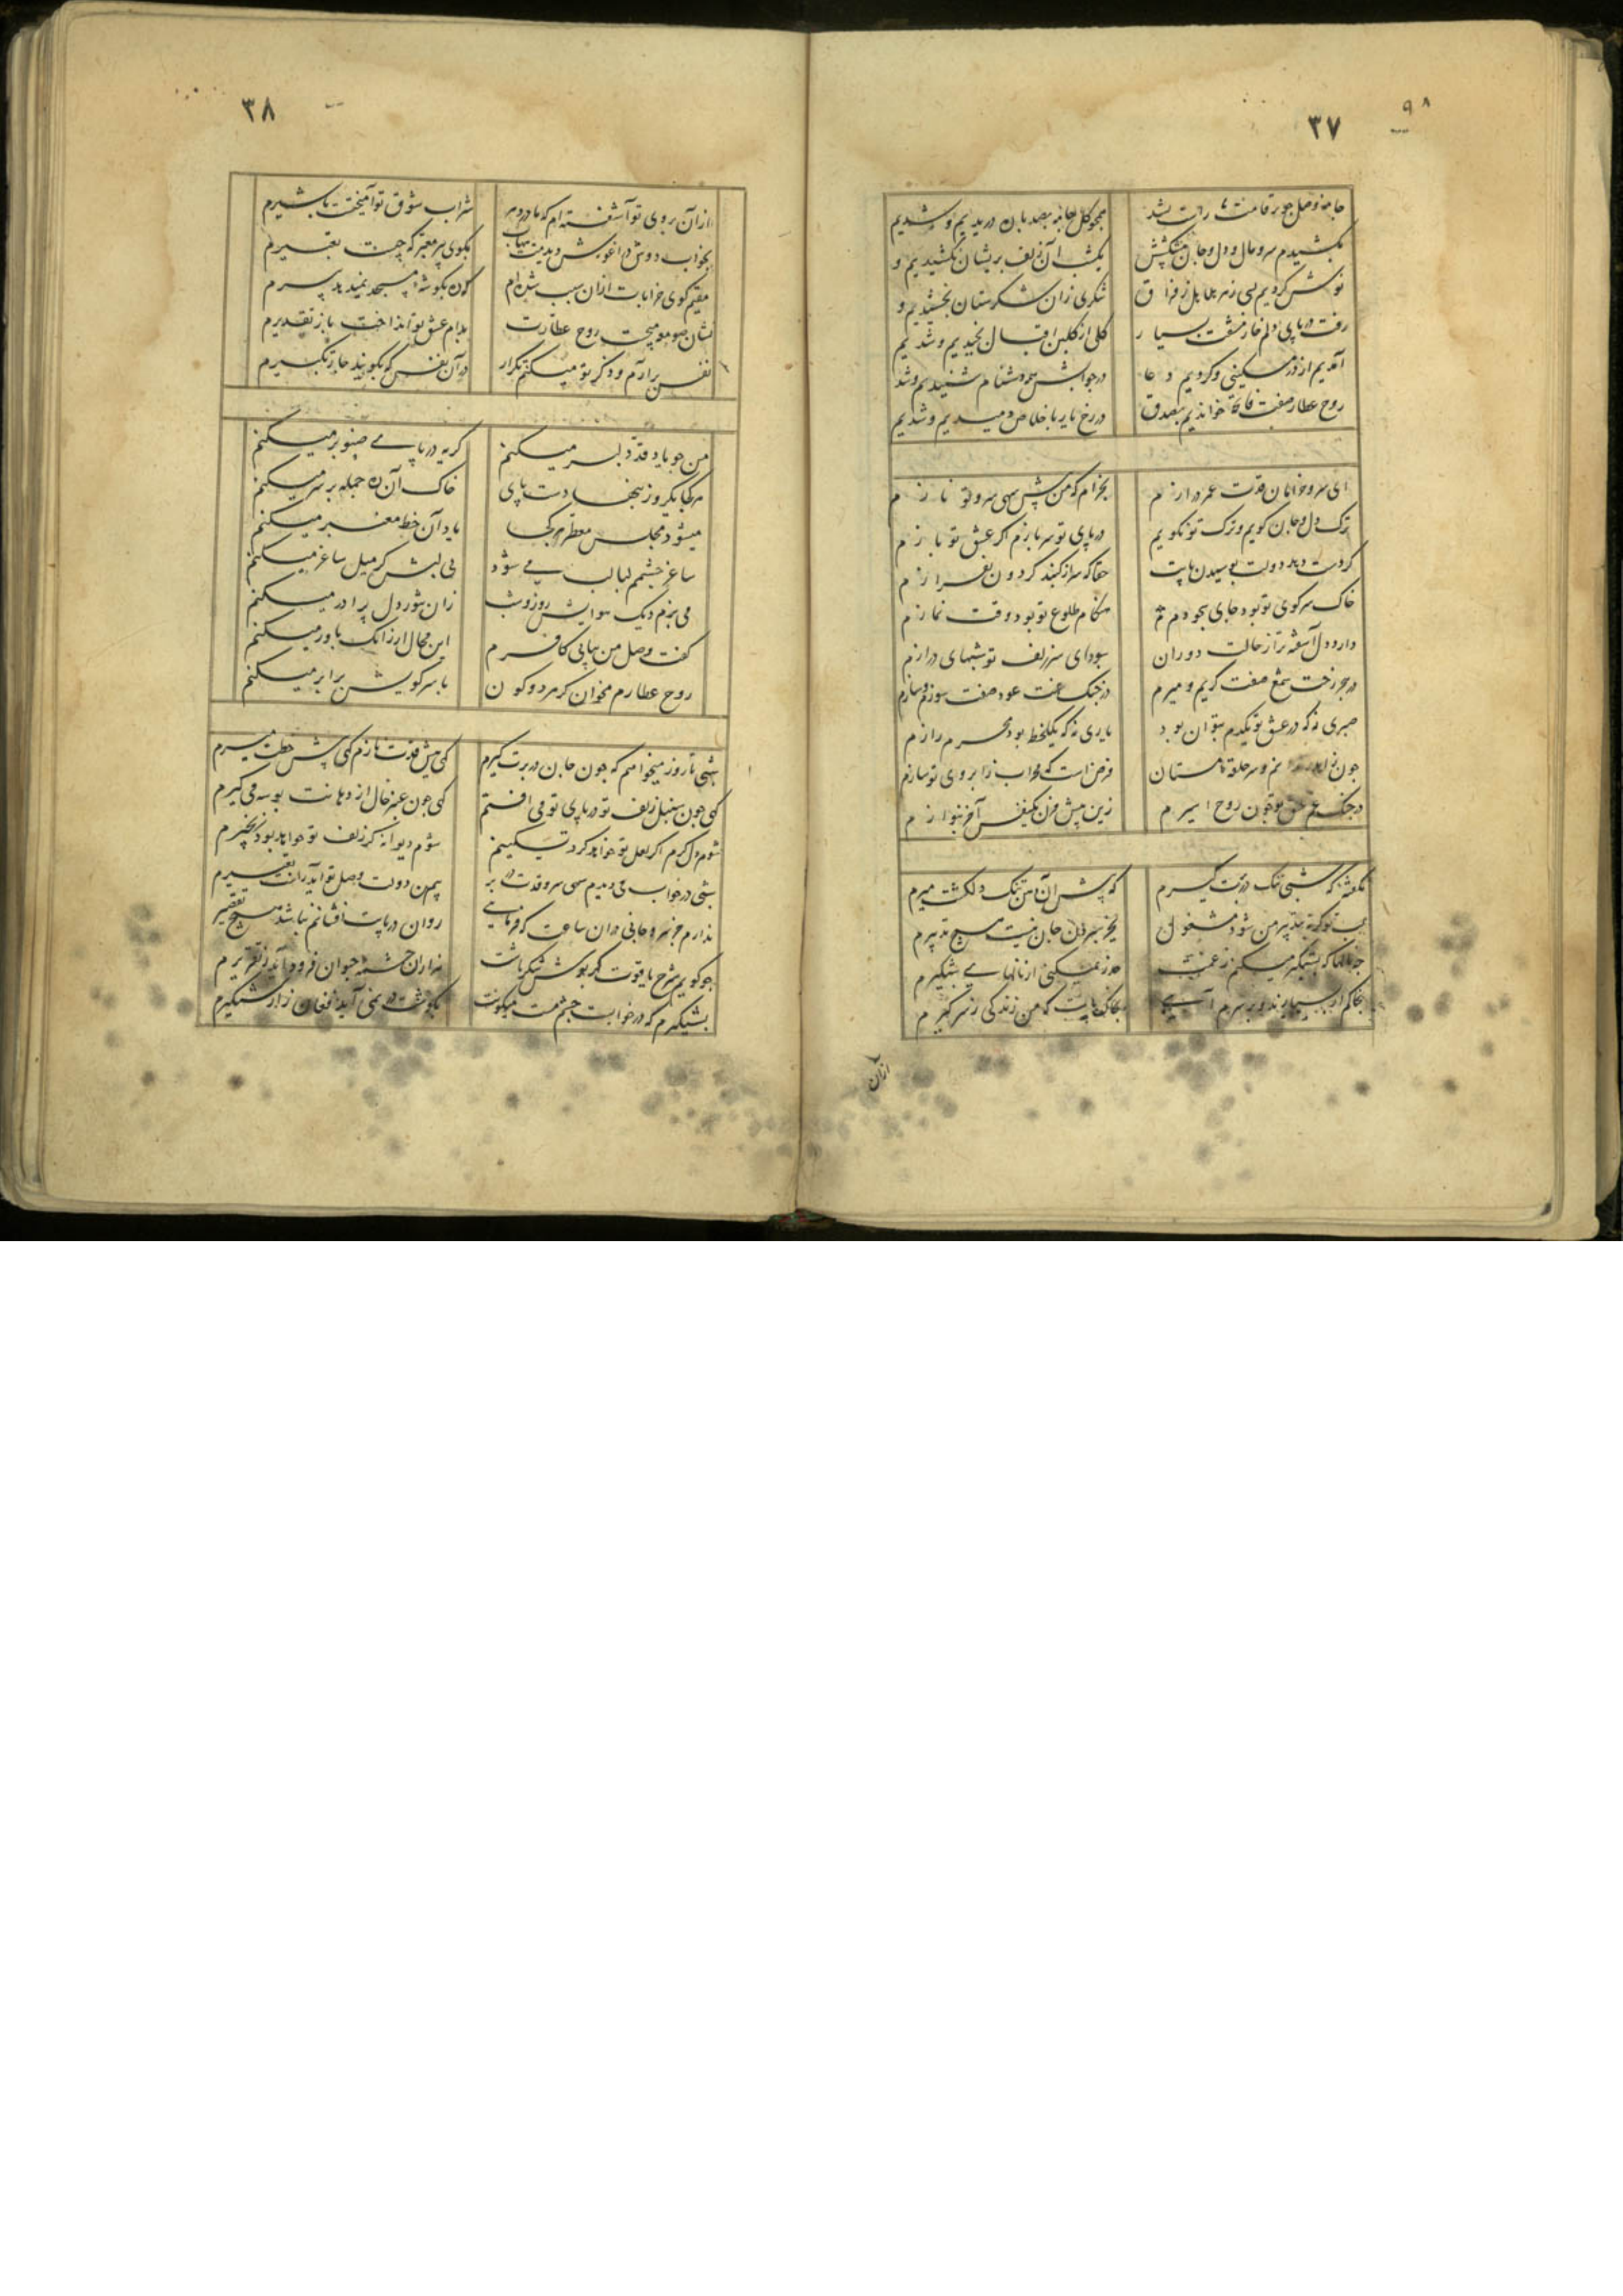 ۹۸
۳۷
جامهٔ وصل چو بر قامت ما راست نشد
همچو گل جامه بصد پاره دریدیم و شدیم
بکشیدم سر و مال و دل و جان
یکشب آن زلف پریشان نکشیدیم و
نوش کردیم بسی زهر هلاهل ز فراق
شکری زان شکرستان نچشیدیم و
رفت در پای دلم خار مشقت بسیار
گلی از گلبن اقبال نچیدیم و شدیم
آمدیم از در مسکینی و کردیم دعا
در جوابش همه دشنام شنیدیم و شد
روح عطار صفت فاتحه خواندیم بصدق
در رخ یار باخلاص دمیدیم و شدیم
ای سرو خرامان قدت عمر درازم
بخرام که من پیش سهی سرو تو نازم
ترک دل و جان گویم و ترک تو نگویم
در پای تو سر بازم اگر عشق تو بازم
گر دست دهد دولت بوسیدن پایت
حقا که سر از گنبد گردون بفرازم
خاک سر کوی تو بود جای سجودم
هنگام طلوع تو بود وقت نمازم
دارد دل آشفته‌تر از حالت دوران
سودای سر زلف تو شبهای درازم
در هجر رخت شمع صفت گریم و میرم
در چنگ غمت عود صفت سوزم و سازم
صبری نه که در عشق تو یکدم بتوان بود
یاری نه که یکلحظه بود محرم رازم
چون و سر حلقهٔ مستان
فرض است که محراب ز ابروی تو سازم
در چنگ غم عشق تو چون روح اسیرم
زین پیش مزن یکنفس آخر بنوازم
نگفتند که شبی تنگ در برت گیرم
که پیش آن دهن تنگ دلکشت میرم
طبیب تو که به تدبیر من شود مشغول
بجز سپردن جان نیست هیچ تدبیرم
چه نالها که بشبگیر میکنم ز غمت
حذر نمیکنی از نالهای شبگیرم
بخاکم ار بسپارند و بر سرم آیی
بخاک پایت که من زندگی ز سر گیرم
از آن
۳۸
از آن بروی تو آشفته‌ام که مادر دهر
شراب شوق تو آمیخت با شیرم
بخواب دوش در آغوش دیدمت
بگوی پیر معبر که چیست تعبیرم
مقیم کوی خرابات ازان سبب شده‌ام
که ره بگوشهٔ مسجد نمیدهد پیرم
نشان صومعه میجست روح عطارت
بدام عشق تو انداخت باز تقدیرم
نفس برآرم و ذکر تو میکنم تکرار
در آن نفس که بگویند چار تکبیرم
من چو یاد قد دلبر میکنم
گریه در پای صنوبر میکنم
هر کجا یکروز بنهادست پای
خاک آن ره جمله بر سر میکنم
میشود مجلس معطر هر کجا
یاد آن خط معنبر میکنم
ساغر چشمم لبالب می شود
بی لبش گر میل ساغر میکنم
می‌پزم دیک هوایش روز و شب
زان بشور دل پرآذر میکنم
گفت وصل من بیابی کافرم
این محال ار زانک باور میکنم
روح عطارم مخوان گر هر دو کون
با سر کویش برابر میکنم
شبی تا روز میخواهم که چون جان در برت گیرم
گهی پیش قدت نازم گهی پیش خطت میرم
گهی چون سنبل زلف تو در پای تو می افتم
گهی چون عنبر خال از دهانت بوسه می گیرم
شوم دل گرم اگر لعل تو خواهد کرد تسکینم
شوم دیوانه گر زلف تو خواهد بود زنجیرم
شبی در خواب می دیدم سهی سرو قدت در بر
همین دولت وصل تو آید زانت تعبیرم
ندارم جز سر و جانی در آن ساعت که فرمایی
روان در پایت افشانم نباشد هیچ تقصیرم
چو گویم شرح یاقوت گهر پوش شکربارت
هزاران چشمهٔ حیوان فرود آید ز تقریرم
بشبگیرم که در خوابست چشم مست میگونت
بگوشت در نمی آید فغان زار شبگیرم